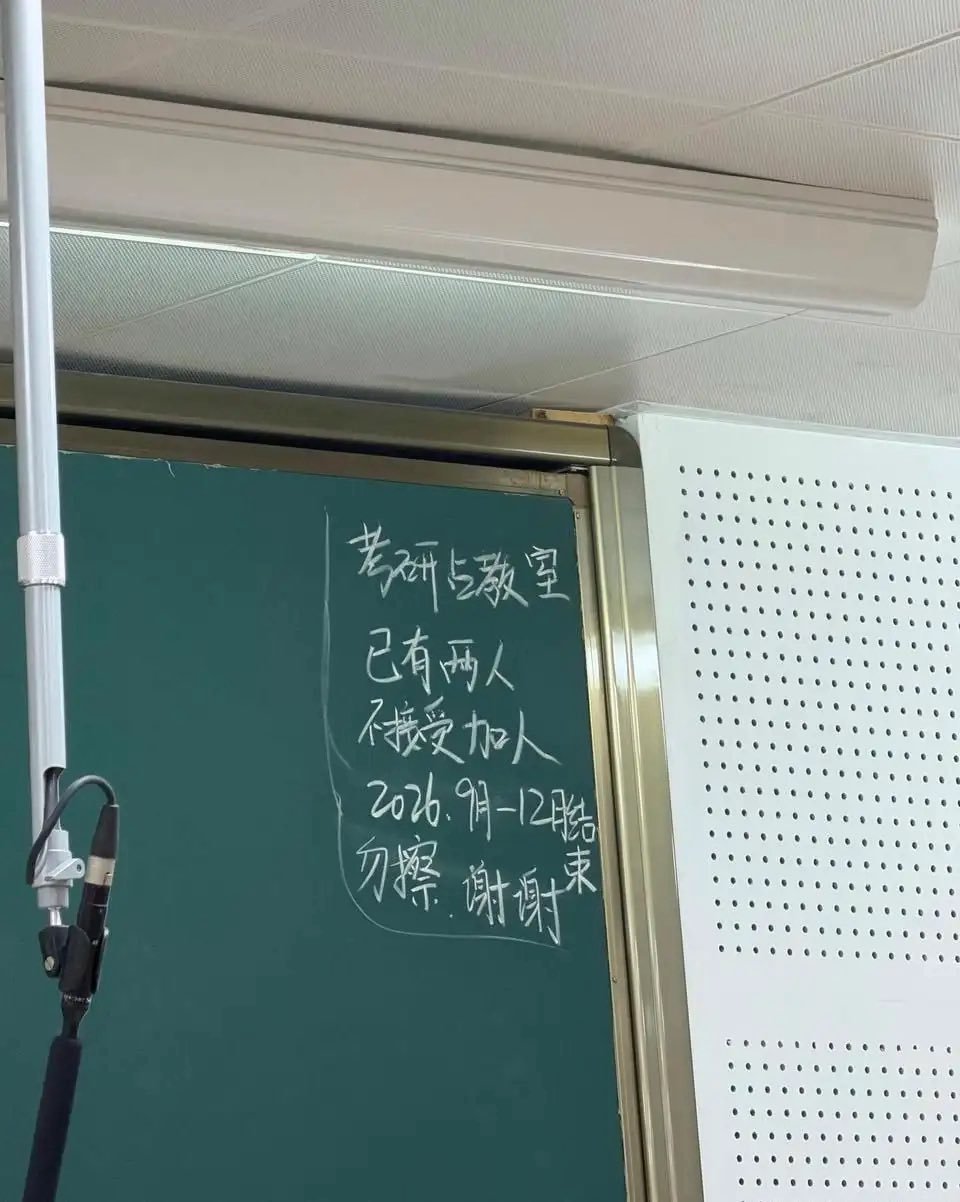 考研占教室
已有两人
不接受加人
2026.9月-12月结束
勿擦.谢谢